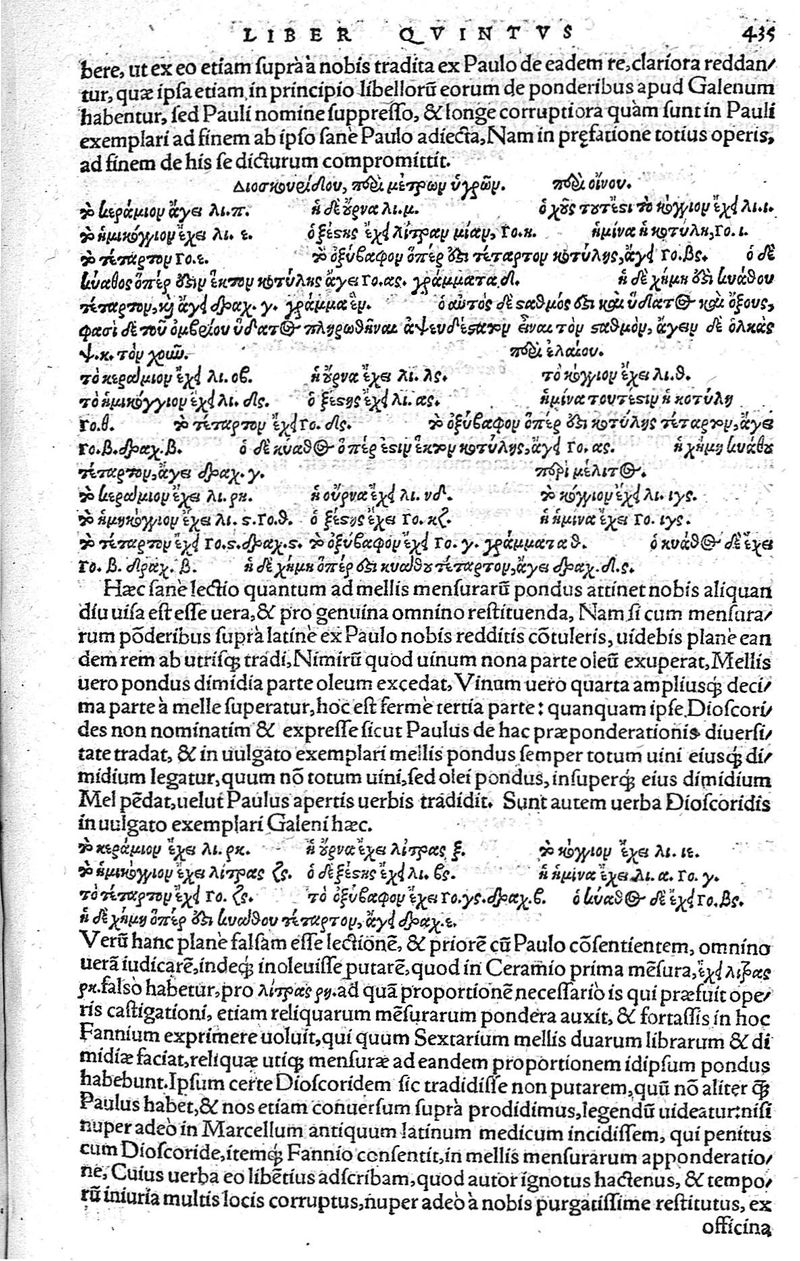 LIBER QVINTVS 435
bere, ut ex eo etiam suprà à nobis tradita ex Paulo de eadem re, clariora reddan/
tur, quæ ipsa etiam, in principio libellorū eorum de ponderibus apud Galenum
habentur, sed Pauli nomine suppresso, & longe corruptiora quàm sunt in Pauli
exemplari ad finem ab ipso sanè Paulo adiecta, Nam in pręfatione totius operis,
ad finem de his se dicturum compromittit.
Διοσκουρίδου, περὶ μέτρων ὑγρῶν. περὶ οἴνου.
τὸ κεράμιον ἄγει λι. π. ἡ δὲ οὔρνα λι. μ. ὁ χοῦς τουτέστι τὸ κόγγιον ἔχει λι. ι.
τὸ ἡμικόγγιον ἔχει λι. ε. ὁ ξέστης ἔχει λίτραν μίαν, γο. κ. ἡμίνα ἢ κοτύλη, γο. ι.
τὸ τέταρτον γο. ε. τὸ ὀξύβαφον ὅπερ ὅτι τέταρτον κοτύλης, ἄγει γο. βς. ὁ δὲ
κύαθος ὅπερ ὅτιν ἕκτον κοτύλης ἄγει γο. ας. γράμματα δ. ἡ δὲ χήμη ὅτι κυάθου
τέταρτον, καὶ ἄγει δραχ. γ. γράμμα ἕν. ὁ αὐτὸς δὲ σταθμός ὅτι καὶ ὕδατος καὶ ὄξους,
φασὶ δὲ τοῦ ὀμβρίου ὕδατος πληρωθῆναι ἀψευδέστατον εἶναι τὸν σταθμὸν, ἄγειν δὲ ὁλκὰς
ψ. κ. τὸν χοῦν. περὶ ἐλαίου.
τὸ κεράμιον ἔχει λι. οβ. ἡ οὔρνα ἔχει λι. λς. τὸ κόγγιον ἔχει λι. θ.
τὸ ἡμικόγγιον ἔχει λι. δς. ὁ ξέστης ἔχει λι. ας. ἡμίνα τουτεστιν ἡ κοτύλη
γο. θ. τὸ τέταρτον ἔχει γο. δς. τὸ ὀξύβαφον ὅπερ ὅτι κοτύλης τέταρτον, ἄγει
γο. β. δραχ. β. ὁ δὲ κύαθος ὅπερ ἐστιν ἕκτον κοτύλης, ἄγει γο. ας. ἡ χήμη κυάθου
τέταρτον, ἄγει δραχ. γ. περὶ μέλιτος.
τὸ κεράμιον ἔχει λι. ρκ. ἡ οὔρνα ἔχει λι. νδ. τὸ κόγγιον ἔχει λι. ιγς.
τὸ ἡμικόγγιον ἔχει λι. ς. γο. θ. ὁ ξέστης ἔχει γο. κζ. ἡ ἡμίνα ἔχει γο. ιγς.
τὸ τέταρτον ἔχει γο. ς. δραχ. ς. τὸ ὀξύβαφον ἔχει γο. γ. γράμματα θ. ὁ κύαθος δὲ ἔχει
γο. β. δραχ. β. ἡ δὲ χήμη ὅπερ ὅτι κυάθου τέταρτον, ἄγει δραχ. δ. ς.
Hæc sanè lectio quantum ad mellis mensurarū pondus attinet nobis aliquan
diu uisa est esse uera, & pro genuina omnino restituenda, Nam si cum mensura/
rum pōderibus suprà latinè ex Paulo nobis redditis cōtuleris, uidebis plane ean
dem rem ab utrisq; tradi, Nimirū quod uinum nona parte oleū exuperat, Mellis
uero pondus dimidia parte oleum excedat, Vinum uero quarta ampliusq; deci/
ma parte à melle superatur, hoc est fermè tertia parte: quanquam ipse Dioscori/
des non nominatim & expresse sicut Paulus de hac præponderationis diuersi/
tate tradat, & in uulgato exemplari mellis pondus semper totum uini eiusq; di/
midium legatur, quum nō totum uini, sed olei pondus, insuperq; eius dimidium
Mel pēdat, uelut Paulus apertis uerbis tradidit. Sunt autem uerba Dioscoridis
in uulgato exemplari Galeni hæc.
τὸ κεράμιον ἔχει λι. ρκ. ἡ οὔρνα ἔχει λίτρας ξ. τὸ κόγγιον ἔχει λι. ιε.
τὸ ἡμικόγγιον ἔχει λίτρας ζς. ὁ δὲ ξέστης ἔχει λι. βς. ἡ ἡμίνα ἔχει λι. α. γο. γ.
τὸ τέταρτον ἔχει γο. ζς. τὸ ὀξύβαφον ἔχει γο. γς. δραχ. β. ὁ κύαθος δὲ ἔχει γο. βς.
ἡ δὲ χήμη ὅπερ ὅτι κυάθου τέταρτον, ἄγει δραχ. ε.
Verū hanc plane falsam esse lectionē, & priorē cū Paulo cōsentientem, omnino
uerā iudicarē, indeq; inoleuisse putarē, quod in Ceramio prima mēsura, ἔχει λίτρας
ρκ. falso habetur, pro λίτρας ρη. ad quā proportionē necessario is qui præfuit ope/
ris castigationi, etiam reliquarum mēsurarum pondera auxit, & fortassis in hoc
Fannium exprimere uoluit, qui quum Sextarium mellis duarum librarum & di
midiæ faciat, reliquæ utiq; mensuræ ad eandem proportionem idipsum pondus
habebunt. Ipsum certe Dioscoridem sic tradidisse non putarem, quū nō aliter q̄;
Paulus habet, & nos etiam conuersum suprà prodidimus, legendū uideatur: nisi
nuper adeo in Marcellum antiquum latinum medicum incidissem, qui penitus
cum Dioscoride, itemq; Fannio consentit, in mellis mensurarum apponderatio/
ne, Cuius uerba eo libētius adscribam, quod autor ignotus hactenus, & tempo/
rū iniuria multis locis corruptus, nuper adeo à nobis purgatissime restitutus, ex
officina